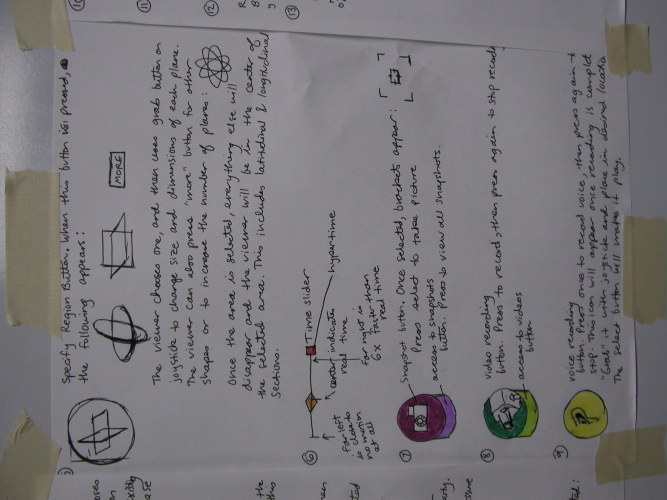 Specify Region Button. When this button is pressed,
the following appears:
MORE
The viewer chooses one, and then uses grab button on
joystick to change size and dimensions of each plane.
The viewer can also press "more" button for other
shapes or to increase the number of planes:
Once the area is selected, everything else will
disappear and the viewer will be in the center of
the selected area. This includes latitudinal & longitudinal
sections.
6
Time slider
hypertime
center indicates
real time
far right is
6x faster than
real time
far left
is close to
no motion
at all
7
Snapshot button. Once selected, brackets appear:
Press select to take picture
access to snapshots
button. press to view all snapshots.
8
video recording
button. Press to record, then press again to stop record
access to videos
button
9
voice recording
button. Press once to record voice, then press again t
stop. This icon will appear once recording is complet
"Grab" it with joystick and place in desired locatio
The select button will makes it play.
10
11
12
13